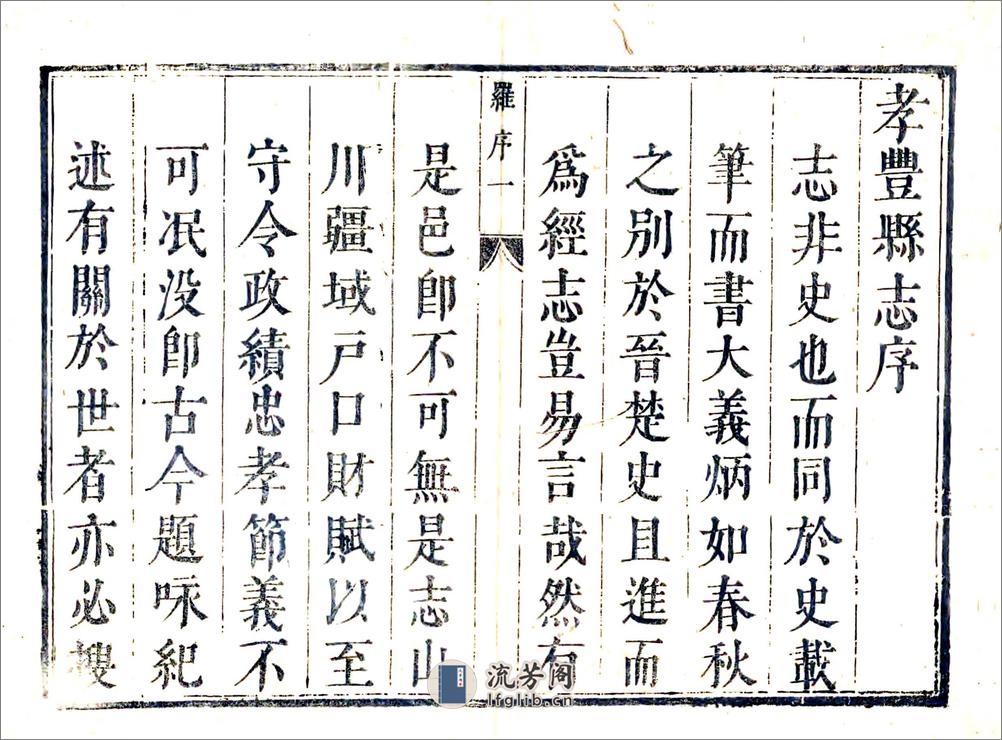 孝豐縣志序
志非史也而同於史載
筆而書大義炳如春秋
之別於晉楚史且進而
為經志豈易言哉然有
羅序一
是邑卽不可無是志山
川疆域戸口財賦以至
守令政績忠孝節義不
可冺没卽古今題咏紀
述有關於世者亦必搜
流芳阁
lfglib.cn